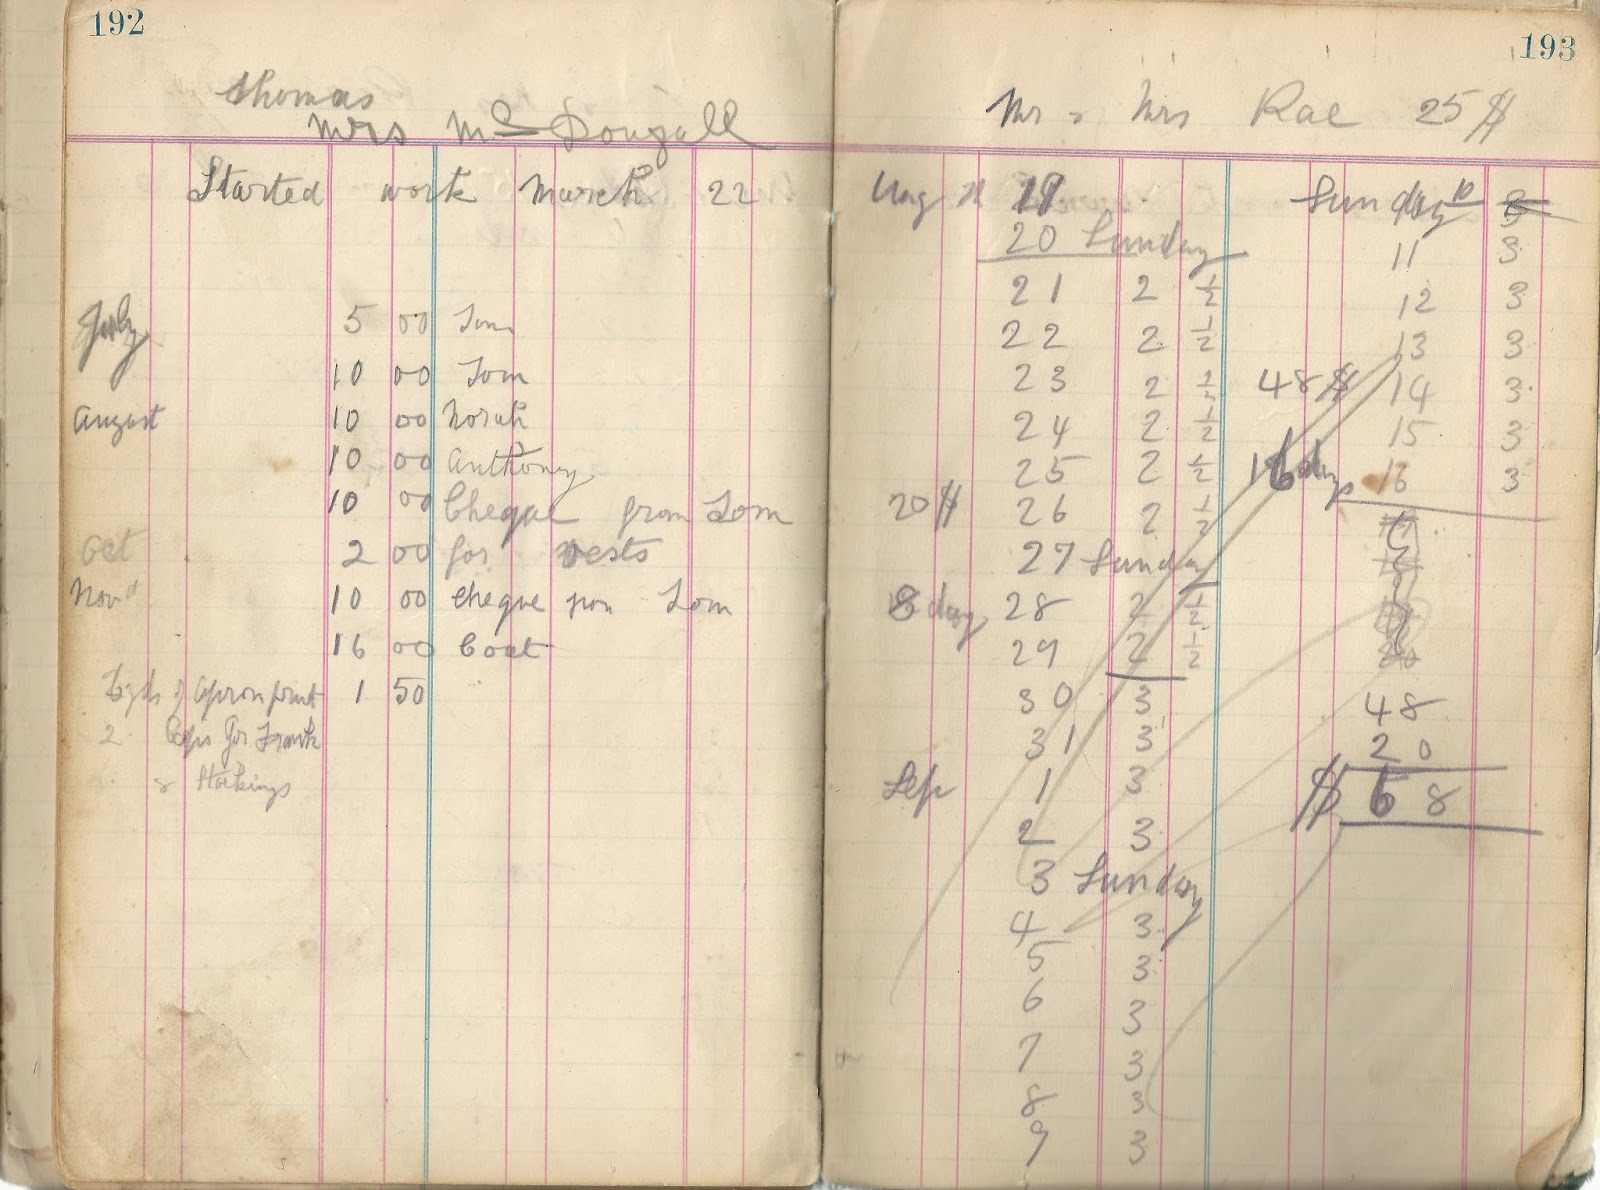 192
Thomas
Mrs McDougall
Started work March 22
July 5 00 Tom
10 00 Tom
August 10 00 Norah
10 00 Anthony
10 00 Cheque from Tom
Oct 2 00 for vests
Nov 10 00 cheque from Tom
16 00 Coat
of Apron print 1 50
2 Caps for Frank
& Stockings
193
Mr & Mrs Rae 25$
Aug 19
20 Sunday
21 2 1/2
22 2 1/2
23 2 1/2
24 2 1/2
25 2 1/2
20$ 26 2 1/2
27 Sunday
8 days 28 2 1/2
29 2 1/2
30 3
31 3
Sep 1 3
2 3
3 Sunday
4 3
5 3
6 3
7 3
8 3
9 3
Sunday 10 3
11 3
12 3
13 3
48$ 14 3
15 3
16 days 16 3
48
20
$ 68